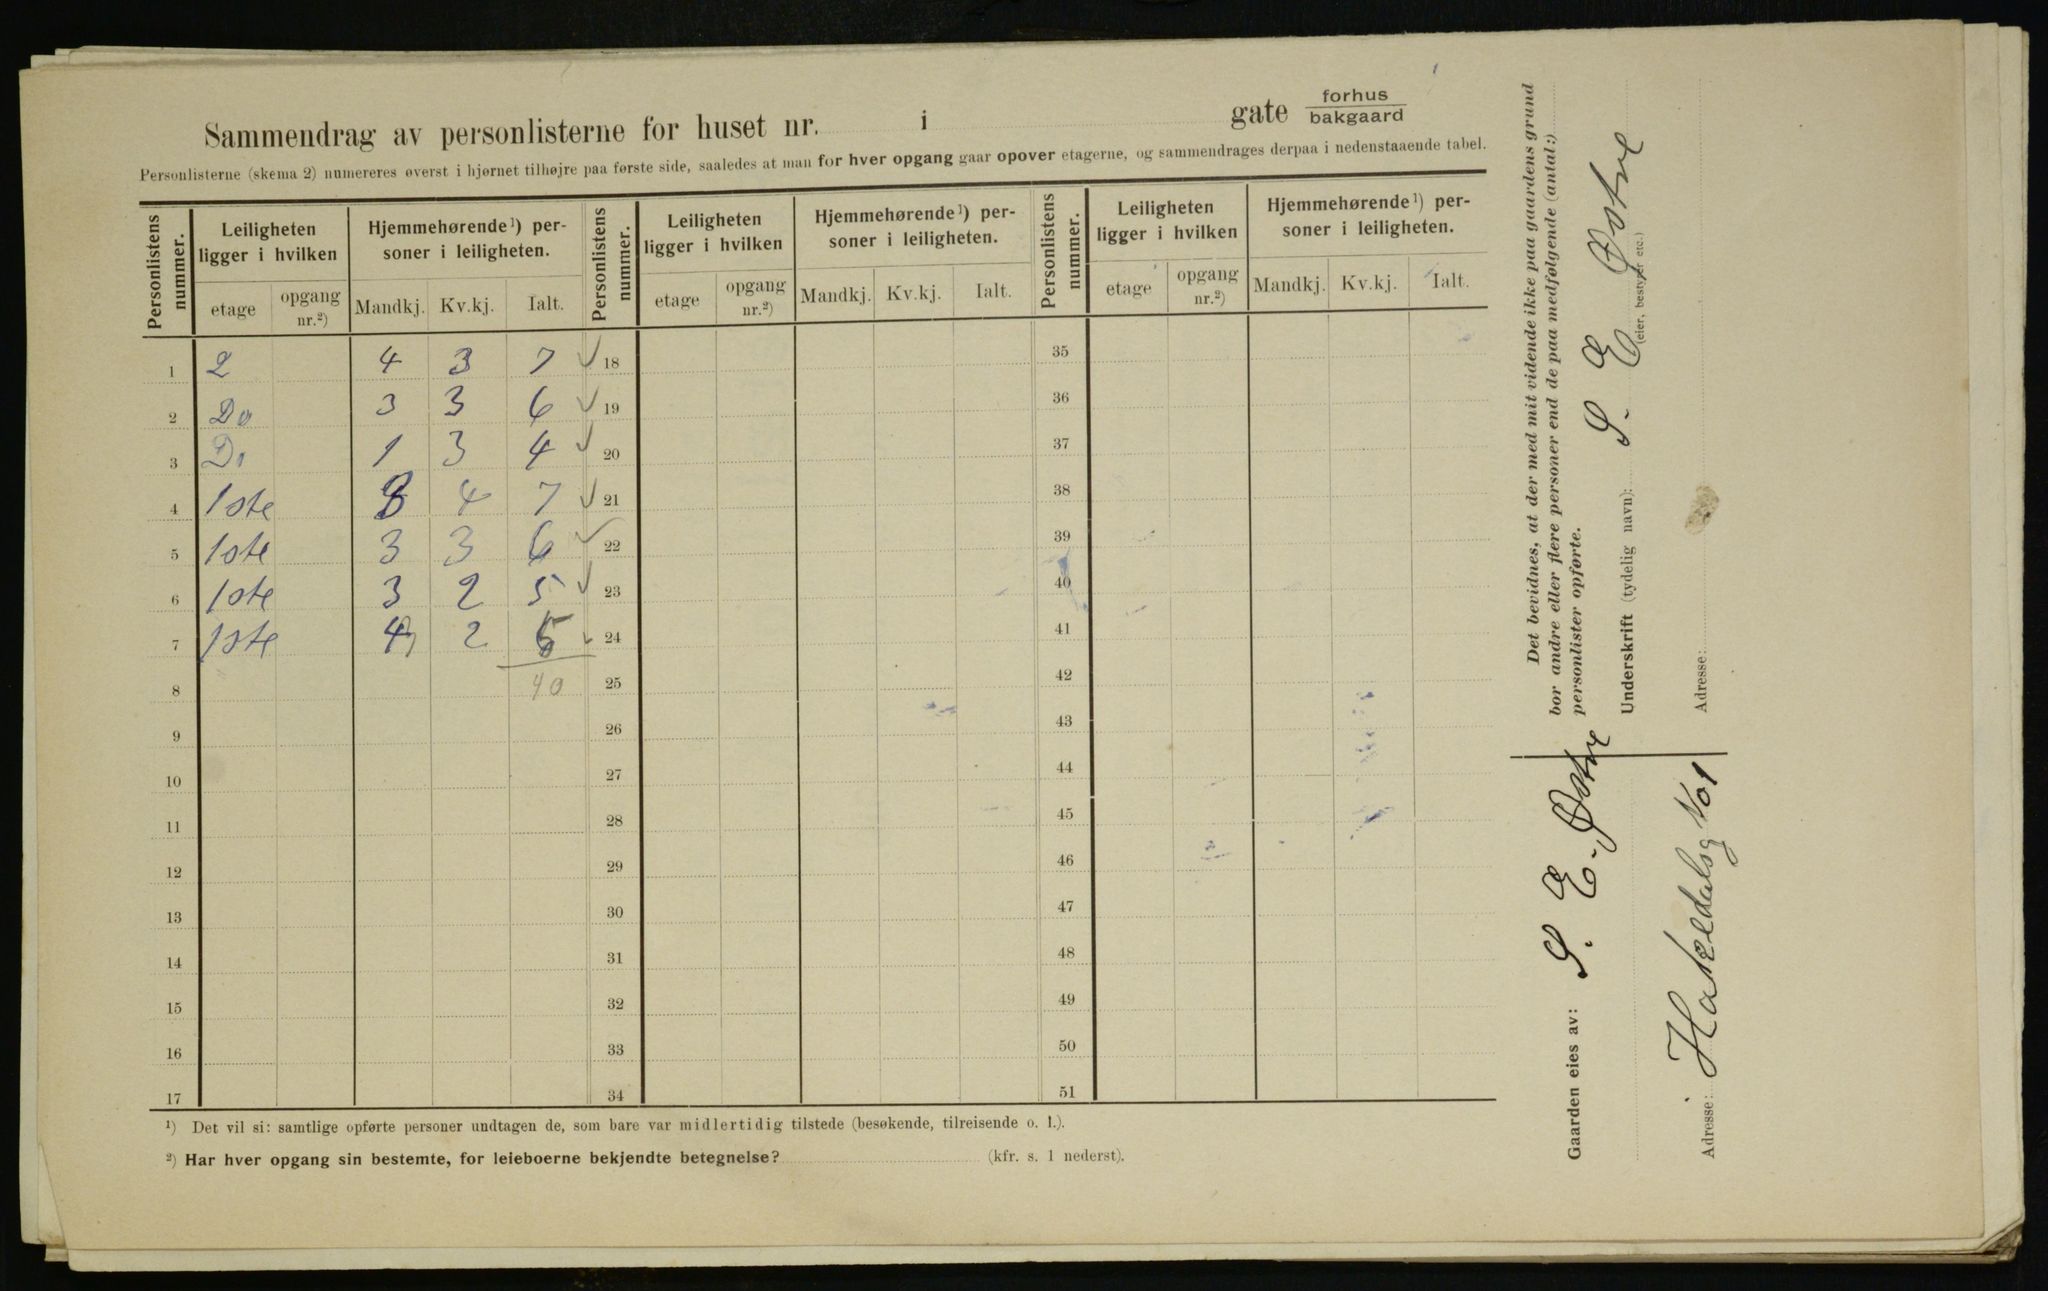 Sammendrag av personlisterne for huset nr. i gate forhus
bakgaard
Personlisterne (skema 2) numereres øverst i hjørnet tilhøjre paa første side, saaledes at man for hver opgang gaar opover etagerne, og sammendrages derpaa i nedenstaaende tabel.
Personlistens nummer. Leiligheten ligger i hvilken Hjemmehørende¹) personer i leiligheten. Personlistens nummer. Leiligheten ligger i hvilken Hjemmehørende¹) personer i leiligheten. Personlistens nummer. Leiligheten ligger i hvilken Hjemmehørende¹) personer i leiligheten.
etage opgang nr.²) Mandkj. Kv.kj. Ialt. etage opgang nr.²) Mandkj. Kv.kj. Ialt. etage opgang nr.²) Mandkj. Kv.kj. Ialt.
1 2 4 3 7 18 35
2 Do 3 3 6 19 36
3 Do 1 3 4 20 37
4 1ste 4 7 21 38
5 1ste 3 3 6 22 39
6 1ste 3 2 5 23 40
7 1ste 2 5 24 41
8 40 25 42
9 26 43
10 27 44
11 28 45
12 29 46
13 30 47
14 31 48
15 32 49
16 33 50
17 34 51
¹) Det vil si: samtlige opførte personer undtagen de, som bare var midlertidig tilstede (besøkende, tilreisende o. l.).
²) Har hver opgang sin bestemte, for leieboerne bekjendte betegnelse? (kfr. s. 1 nederst).
Det bevidnes, at der med mit vidende ikke paa gaardens grund
bor andre eller flere personer end de paa medfølgende (antal:)
personlister opførte.
Underskrift (tydelig navn): S. E. Østre
(eier, bestyrer etc.)
Adresse:
Gaarden eies av: S. E. Østre
Adresse: Hakedalsg No 1